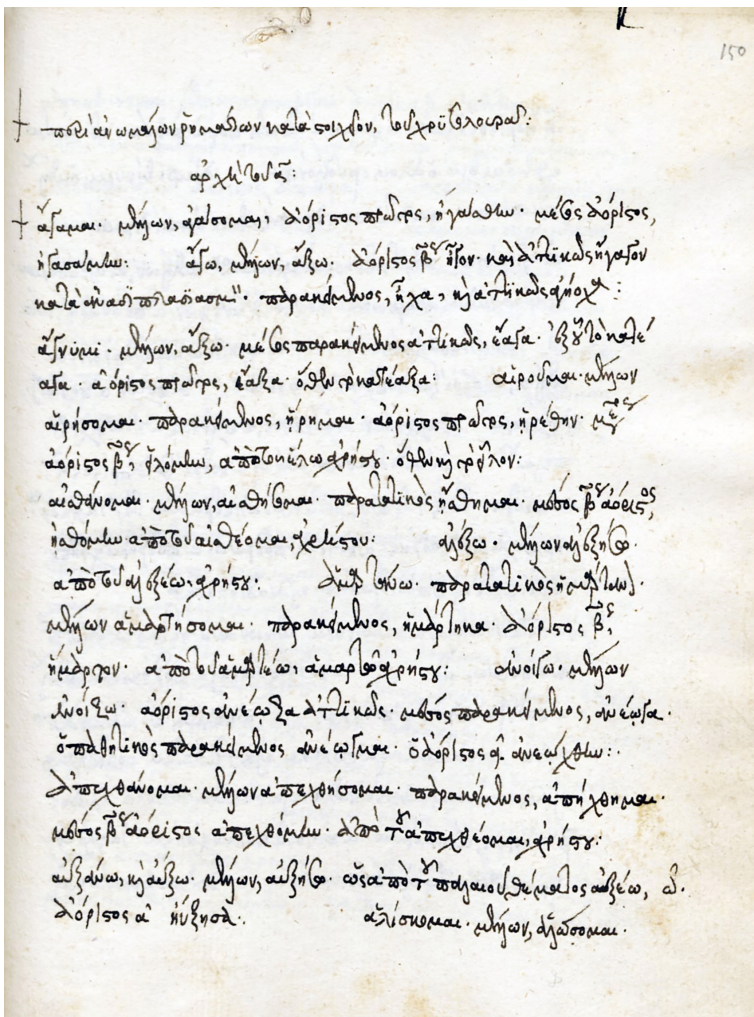 150
περὶ ἀνωμάλων ῥημάτων κατὰ στοιχεῖον, τοῦ χρυσολωρᾶ:
ἀρχὴ τοῦ α:
ἄγαμαι· μέλλων, ἀγάσομαι, ἀόριστος πρῶτος, ἠγάσθην· μέσος ἀόριστος,
ἠγασάμην: ἄγω, μέλλων, ἄξω· ἀόριστος βος ἦγον· καὶ ἀττικῶς ἤγαγον
κατὰ ἀναδιπλασιασμόν· παρακείμενος, ἦχα, καὶ ἀττικῶς ἀγήοχα:
ἄγνυμι· μέλλων, ἄξω· μέσος παρακείμενος ἀττικῶς, ἔαγα· ἐξ οὗ τὸ κατέ
αγα· ἀόριστος πρῶτος, ἔαξα· ὅθεν τὸ κατέαξα: αἱροῦμαι· μέλλων
αἱρήσομαι· παρακείμενος, ᾕρημαι· ἀόριστος πρῶτος, ᾑρέθην· μέσος
ἀόριστος βος, εἱλόμην, ἀπὸ τοῦ ἕλω ἀχρήστου· ὅθεν καὶ τὸ εἷλον:
αἰσθάνομαι· μέλλων, αἰσθήσομαι· παρατατικὸς ᾔσθημαι· μέσος βος ἀόριστος,
ᾐσθόμην ἀπὸ τοῦ αἰσθέομαι, ἀχρήστου: ἀλέξω· μέλλων ἀλεξήσω·
ἀπὸ τοῦ ἀλεξέω, ἀχρήστου: ἁμαρτάνω· παρατατικὸς ἡμάρτανον·
μέλλων ἁμαρτήσομαι· παρακείμενος, ἡμάρτηκα· ἀόριστος βος,
ἥμαρτον· ἀπὸ τοῦ ἁμαρτέω, ἁμαρτῶ ἀχρήστου: ἀνοίγω· μέλλων
ἀνοίξω· ἀόριστος ἀνέῳξα ἀττικῶς· μέσος παρακείμενος, ἀνέῳγα·
ὁ παθητικὸς παρακείμενος ἀνέῳγμαι· ὁ ἀόριστος α· ἀνεῴχθην:
ἀπεχθάνομαι· μέλλων ἀπεχθήσομαι· παρακείμενος, ἀπήχθημαι·
μέσος βος ἀόριστος ἀπεχθόμην· ἀπὸ τοῦ ἀπεχθέομαι, ἀχρήστου:
αὐξάνω, καὶ αὔξω· μέλλων, αὐξήσω· ὡς ἀπὸ τοῦ παλαιοῦ θέματος αὐξέω, ῶ·
ἀόριστος α' ηὔξησα· ἁλίσκομαι· μέλλων, ἁλώσομαι·